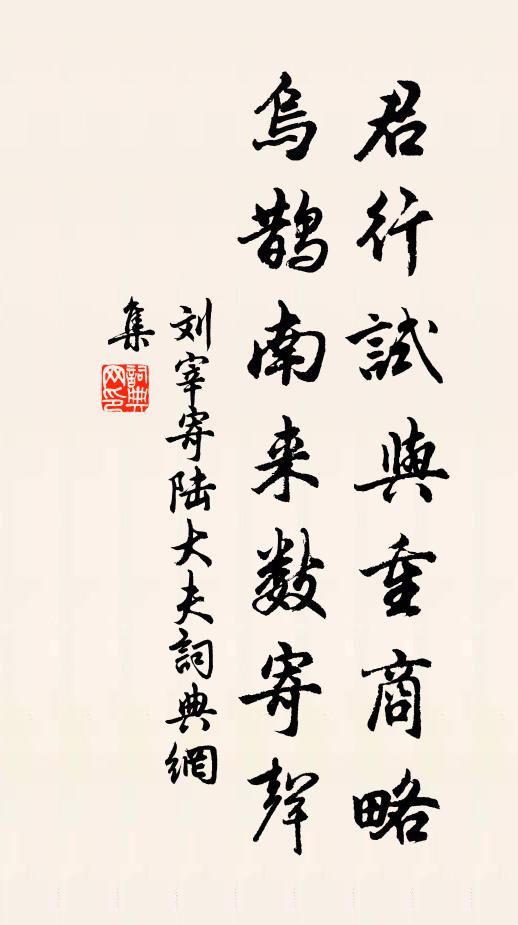 君行試與重商略
烏鵲南来数寄聲
刘宰寄陆大夫詞典網
集
詞典网印